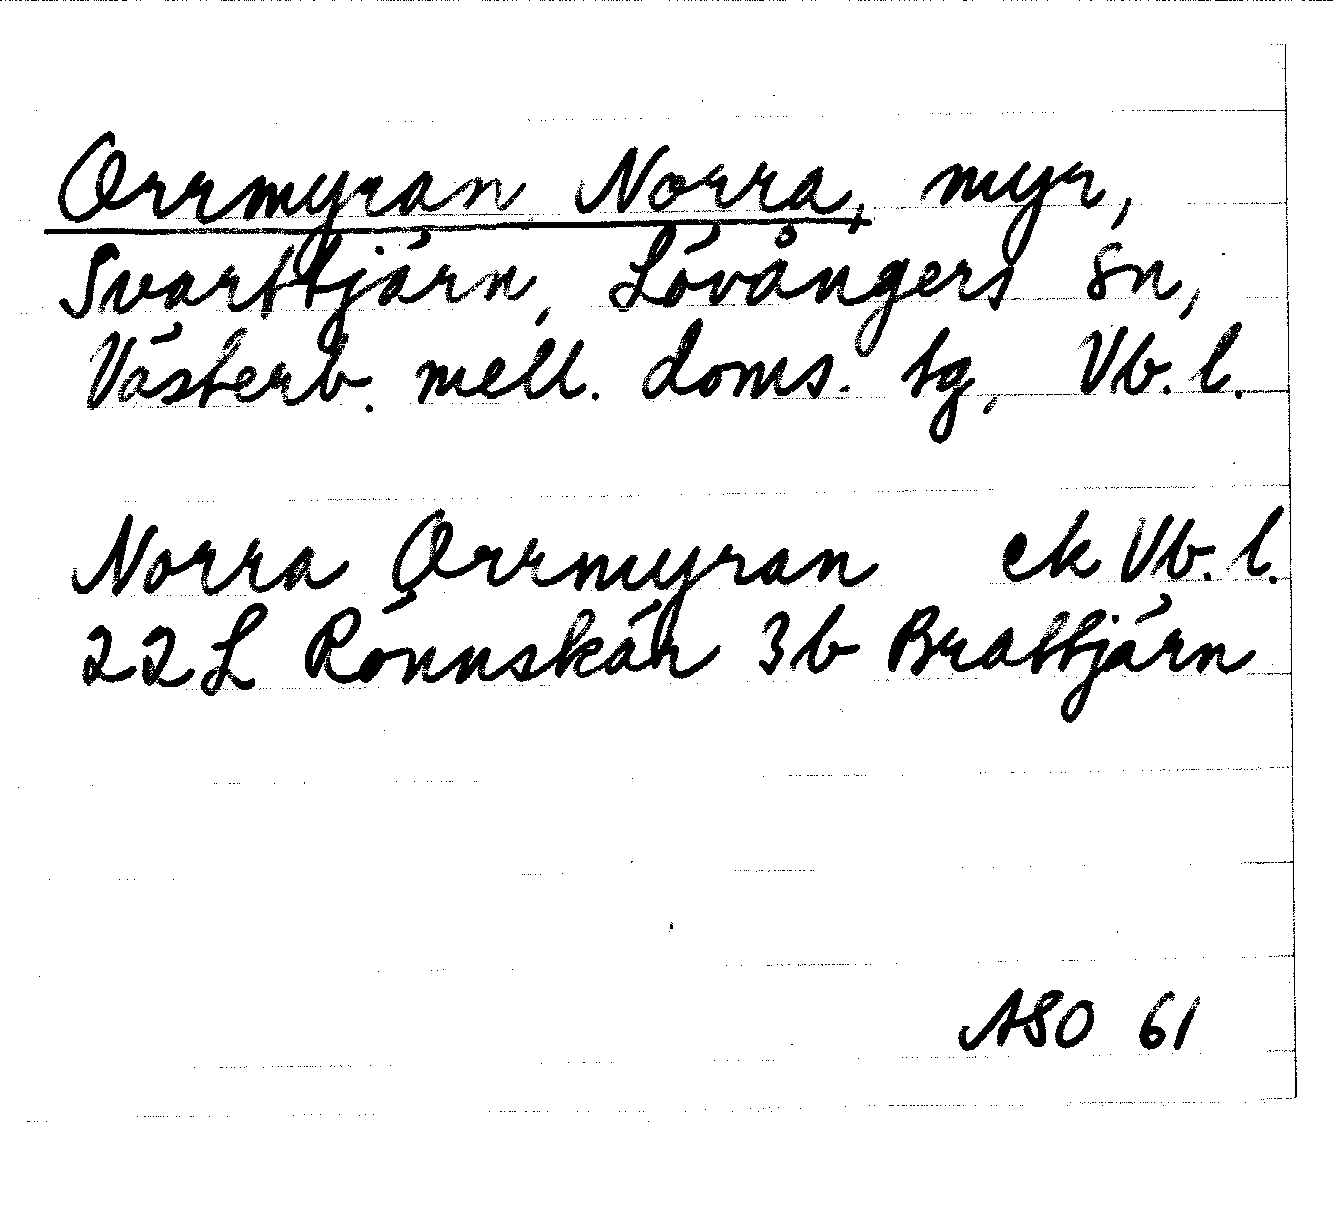 Orrmyran Norra, myr,
Svarttjärn, Lövångers sn,
Västerb. mell. doms. tg, Vb. l.
Norra Orrmyran ek Vb. l.
22L Rönnskär 3b Brattjärn
ASO 61